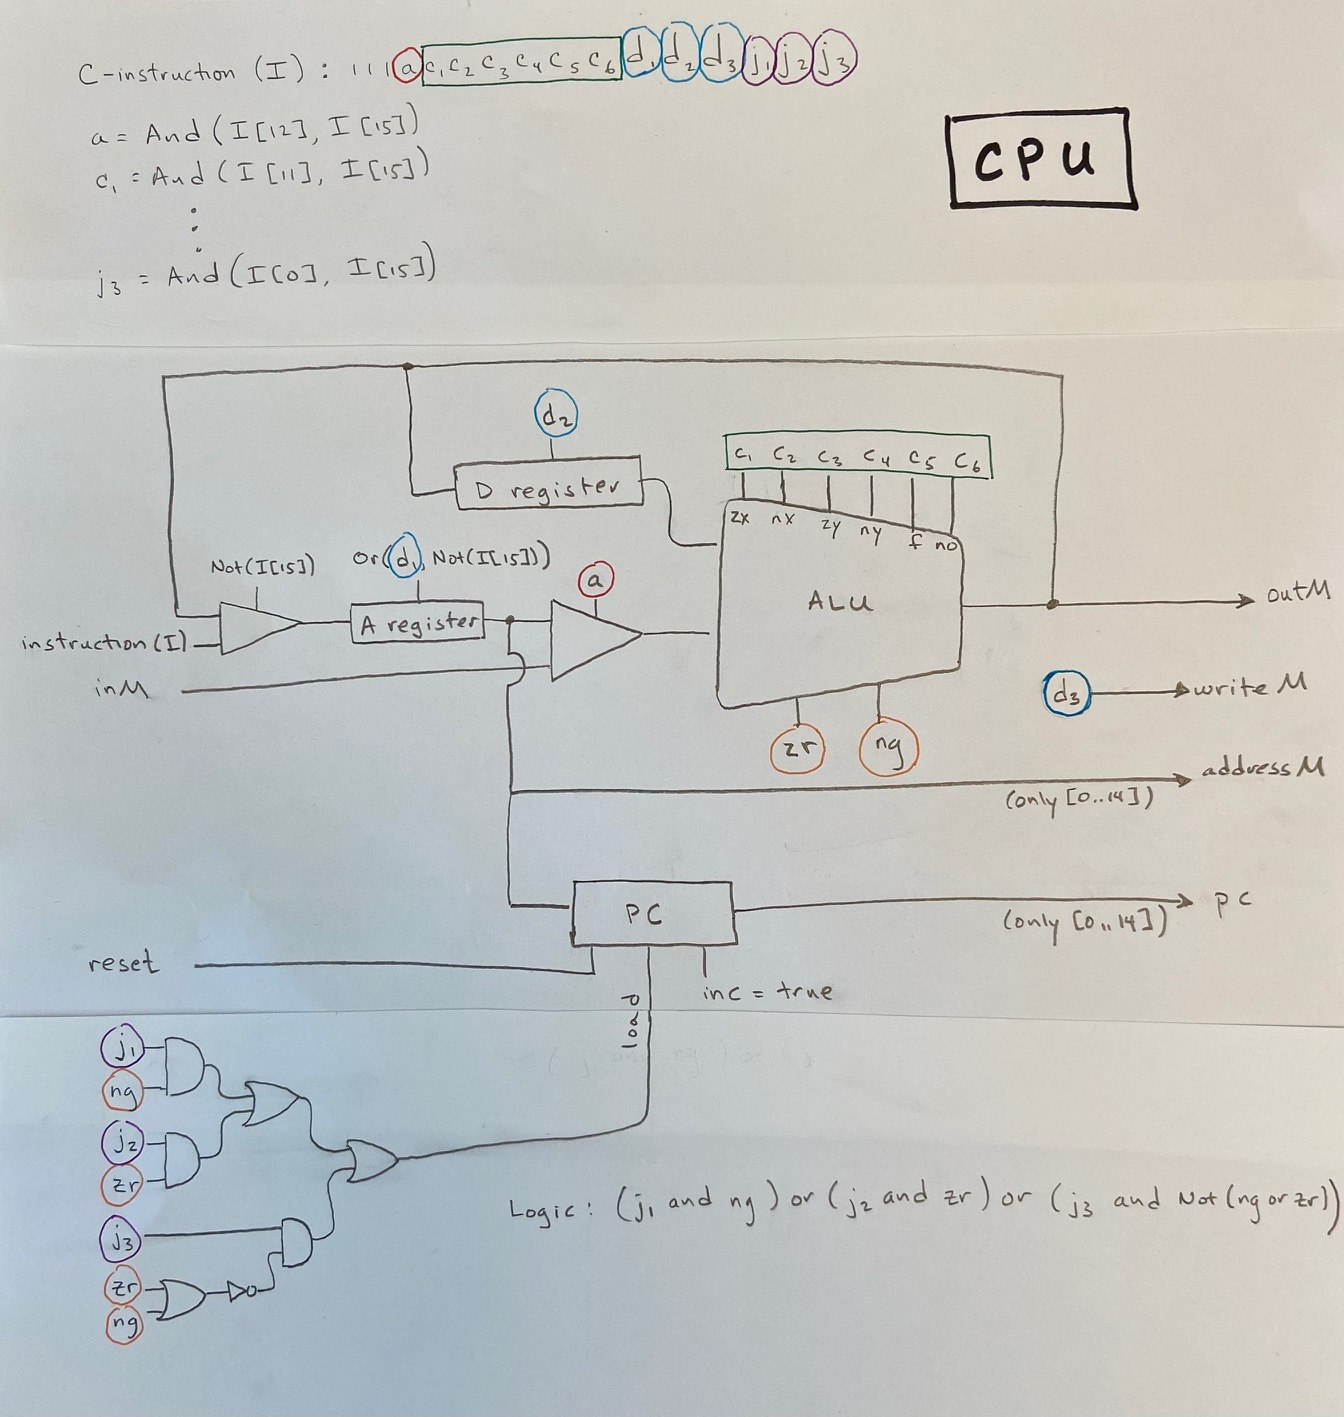 C-instruction (I) : 111 a c₁ c₂ c₃ c₄ c₅ c₆ d₁ d₂ d₃ j₁ j₂ j₃
a = And (I[12], I[15])
CPU
c₁ = And (I[11], I[15])
⋮
j₃ = And (I[0], I[15])
d₂
D register
c₁ c₂ c₃ c₄ c₅ c₆
zx nx zy ny f no
Not(I[15])
Or(d₁, Not(I[15]))
a
ALU
outM
A register
instruction (I)
inM
d₃
writeM
zr
ng
addressM
(only [0..14])
PC
pc
(only [0..14])
reset
inc = true
load
j₁
ng
j₂
zr
Logic: (j₁ and ng) or (j₂ and zr) or (j₃ and Not (ng or zr))
j₃
zr
ng